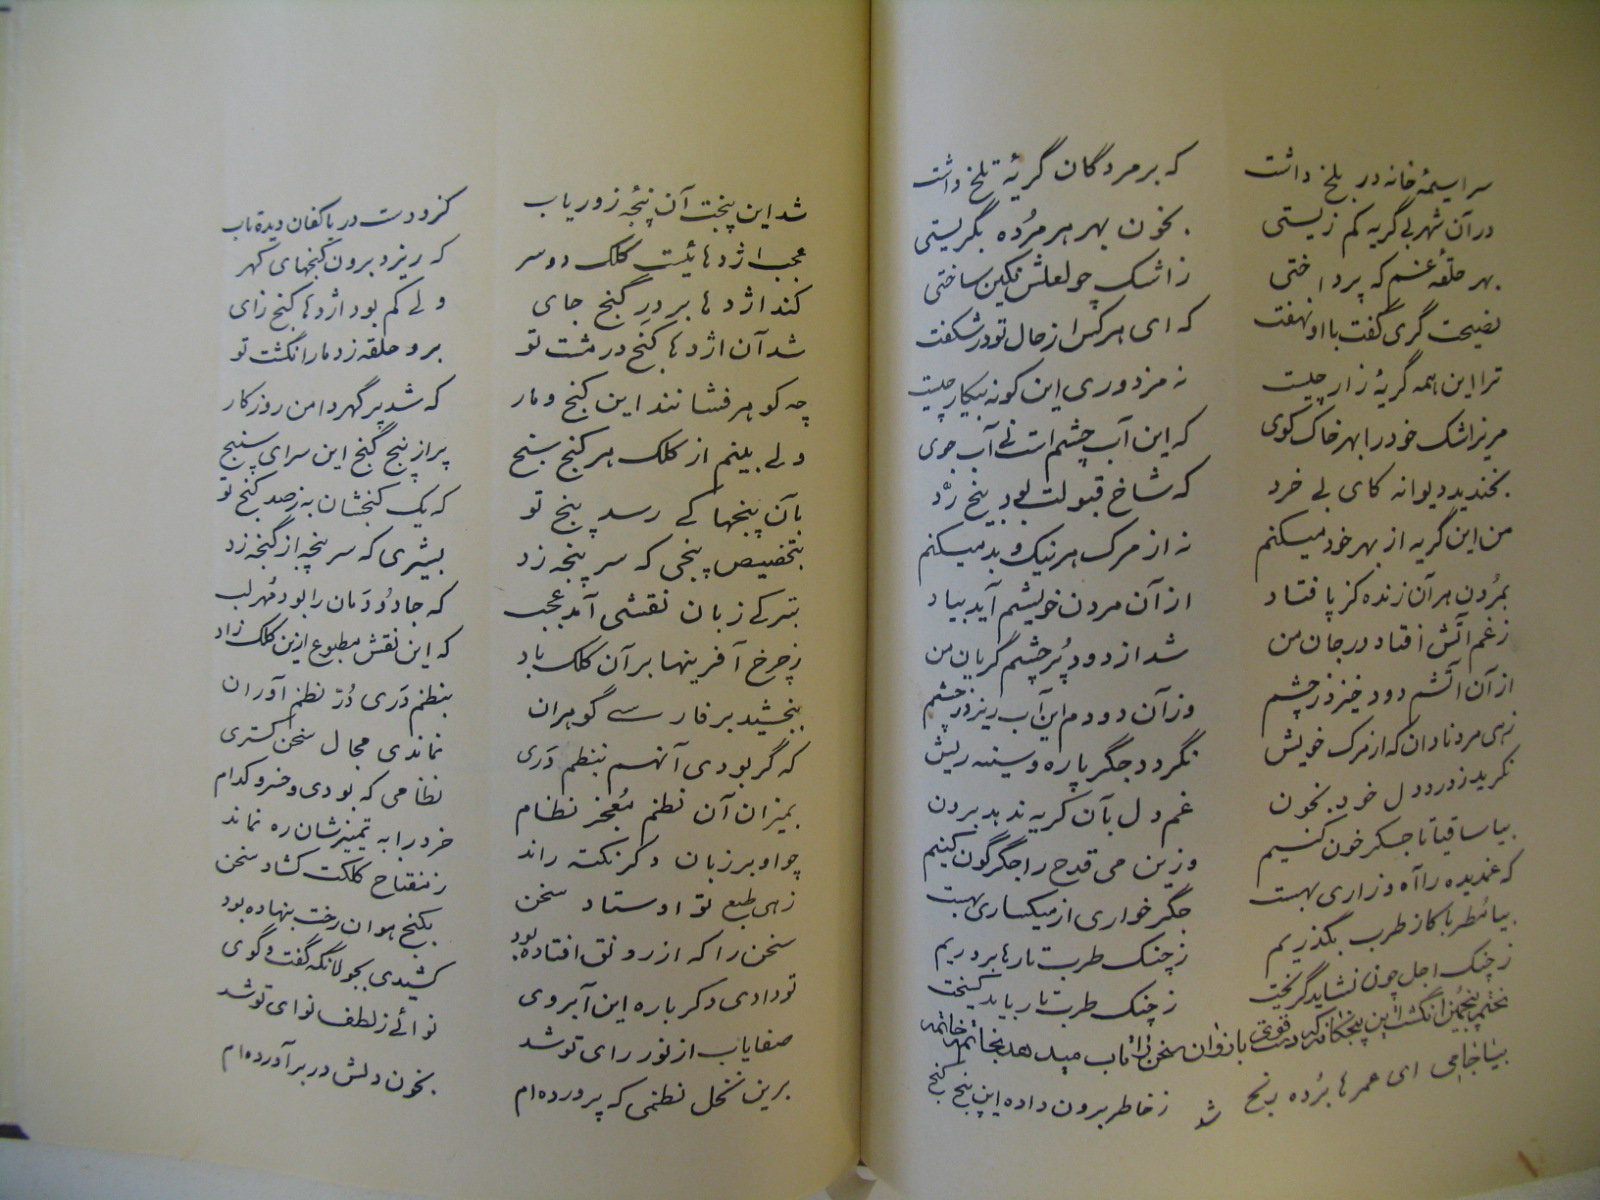 سراسیمهٔ خانه در بلخ داشت که بر مردگان گریهٔ تلخ داشت
در آن شهر بی گریه کم زیستی بخون بهر هر مرده بگریستی
بهر حلقهٔ غم که پرداختی ز اشک چو لعلش نکین ساختی
نصیحت گری گفت با او نهفت که ای هر کس از حال تو در شکفت
ترا این همه گریهٔ زار چیست نه مزدوری این کونه بیکار چیست
مریز اشک خود را بهر خاک کوی که این آب چشم است نے آب جوی
بخندید دیوانه کای بی خرد که شاخ قبولت بود بیخ رد
من این گریه از بهر خود میکنم نه از مرک هر نیک و بد میکنم
بمردن هر آن زنده کز پا فتاد از آن مردن خویشم آید بیاد
ز غم آتش افتاد در جان من شد از دود پر چشم گریان من
از آن آتشم دود خیزد ز چشم وز آن دودم این آب ریزد ز چشم
زهی مرد نادان که از مرک خویش نگردد جگر پاره و سینه ریش
نکرید ز درد دل خود بخون غم دل بآن کریه ندهد برون
بیا ساقیا تا جکر خون کنیم وزین می قدح را جگرگون کنیم
که غمدیده را آه و زاری بهست جگر خواری از میکساری بهست
بیا مطربا کز طرب بگذریم ز چنک طرب تارها بر دریم
ز چنک اجل چون نشاید گریخت ز چنک طرب تار باید کسیخت
ختم پنجمین انگشت این پنجه که دست قوی بازوان سخن را تاب میدهد بخاتمه خاتمه
بیا جامی ای عمرها برده رنج ز خاطر برون داده این پنج کنج
شد
شد این پنجت آن پنجهٔ زور یاب کزو دست دریا کفان دیده تاب
عجب اژدهائیست کلک دو سر که ریزد برون کنجهای کهر
کند اژدها بر در گنج جای ولے کم بود اژدها کنج زای
شد آن اژدها کنج در مشت تو برو حلقه زد مار انگشت تو
چه کوهر فشانند این کنج و مار که شد پر گهر دامن روزکار
ولے بینم از کلک هر کنج سنج پر از پنج گنج این سرای سپنج
بآن پنجها کے رسد پنج تو که یک کنجشان به ز صد کنج تو
بتخصیص پنجی که سر پنجه زد بشیری که سر پنجه از گنجه زد
بترکے زبان نقشی آمد عجب که جادو دمان را بود مهر لب
ز چرخ آفرینها بر آن کلک باد که این نقش مطبوع ازین کلک زاد
ببخشید بر فارسے گوهران بنظم دری در نظم آوران
که گر بودی آنهم بنظم دری نماندی مجال سخن کستری
بمیزان آن نظم معجز نظام نظامی که بودی و خسرو کدام
چو او بر زبان دکر نکته راند خرد را به تمییزشان ره نماند
زهی طبع تو اوستاد سخن ز مفتاح کلکت کشاد سخن
سخن را که از رونق افتاده بود بکنج هوان رخت بنهاده بود
تو دادی دکر باره این آبروی کشیدی بجولانکه گفت و گوی
صفا یاب از نور رای تو شد نوائے ز لطف نوای تو شد
برین نخل نظمی که پرورده‌ام بخون دلش در بر آورده‌ام